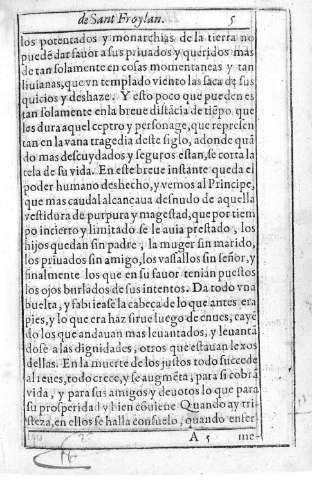 de Sant Froylan. 5
los potentados y monarchias de la tierra no
puedẽ dar fauor a sus priuados y queridos mas
de tan solamente en cosas momentaneas y tan
liuianas, que vn templado viento las saca de sus
quicios y deshaze. Y esto poco que pueden es
tan solamente en la breue distãcia de tiẽpo que
les dura aquel ceptro y personage, que represen
tan en la vana tragedia deste siglo, adonde quã
do mas descuydados y seguros estan, se corta la
tela de su vida. En este breue instante queda el
poder humano deshecho, y vemos al Principe,
que mas caudal alcançaua desnudo de aquella
vestidura de purpura y magestad, que por tiem
po incierto y limitado se le auia prestado, los
hijos quedan sin padre, la muger sin marido,
los priuados sin amigo, los vassallos sin señor, y
finalmente los que en su fauor tenian puestos
los ojos burlados de sus intentos. Da todo vna
buelta, y
la cabeça de lo que antes era
pies, y lo que era haz sirue luego de enues, cayẽ
do los que andauan mas leuantados, y leuantã
dose a las dignidades, otros que estauan lexos
dellas. En la muerte de los justos todo succede
al reues, todo crece, y se augmẽta, para si cobrã
vida, y para sus amigos y deuotos lo que para
su prosperidad y bien cõuiene Quando ay tri-
steza, en ellos se halla consuelo, quando enfer
A 5 me-